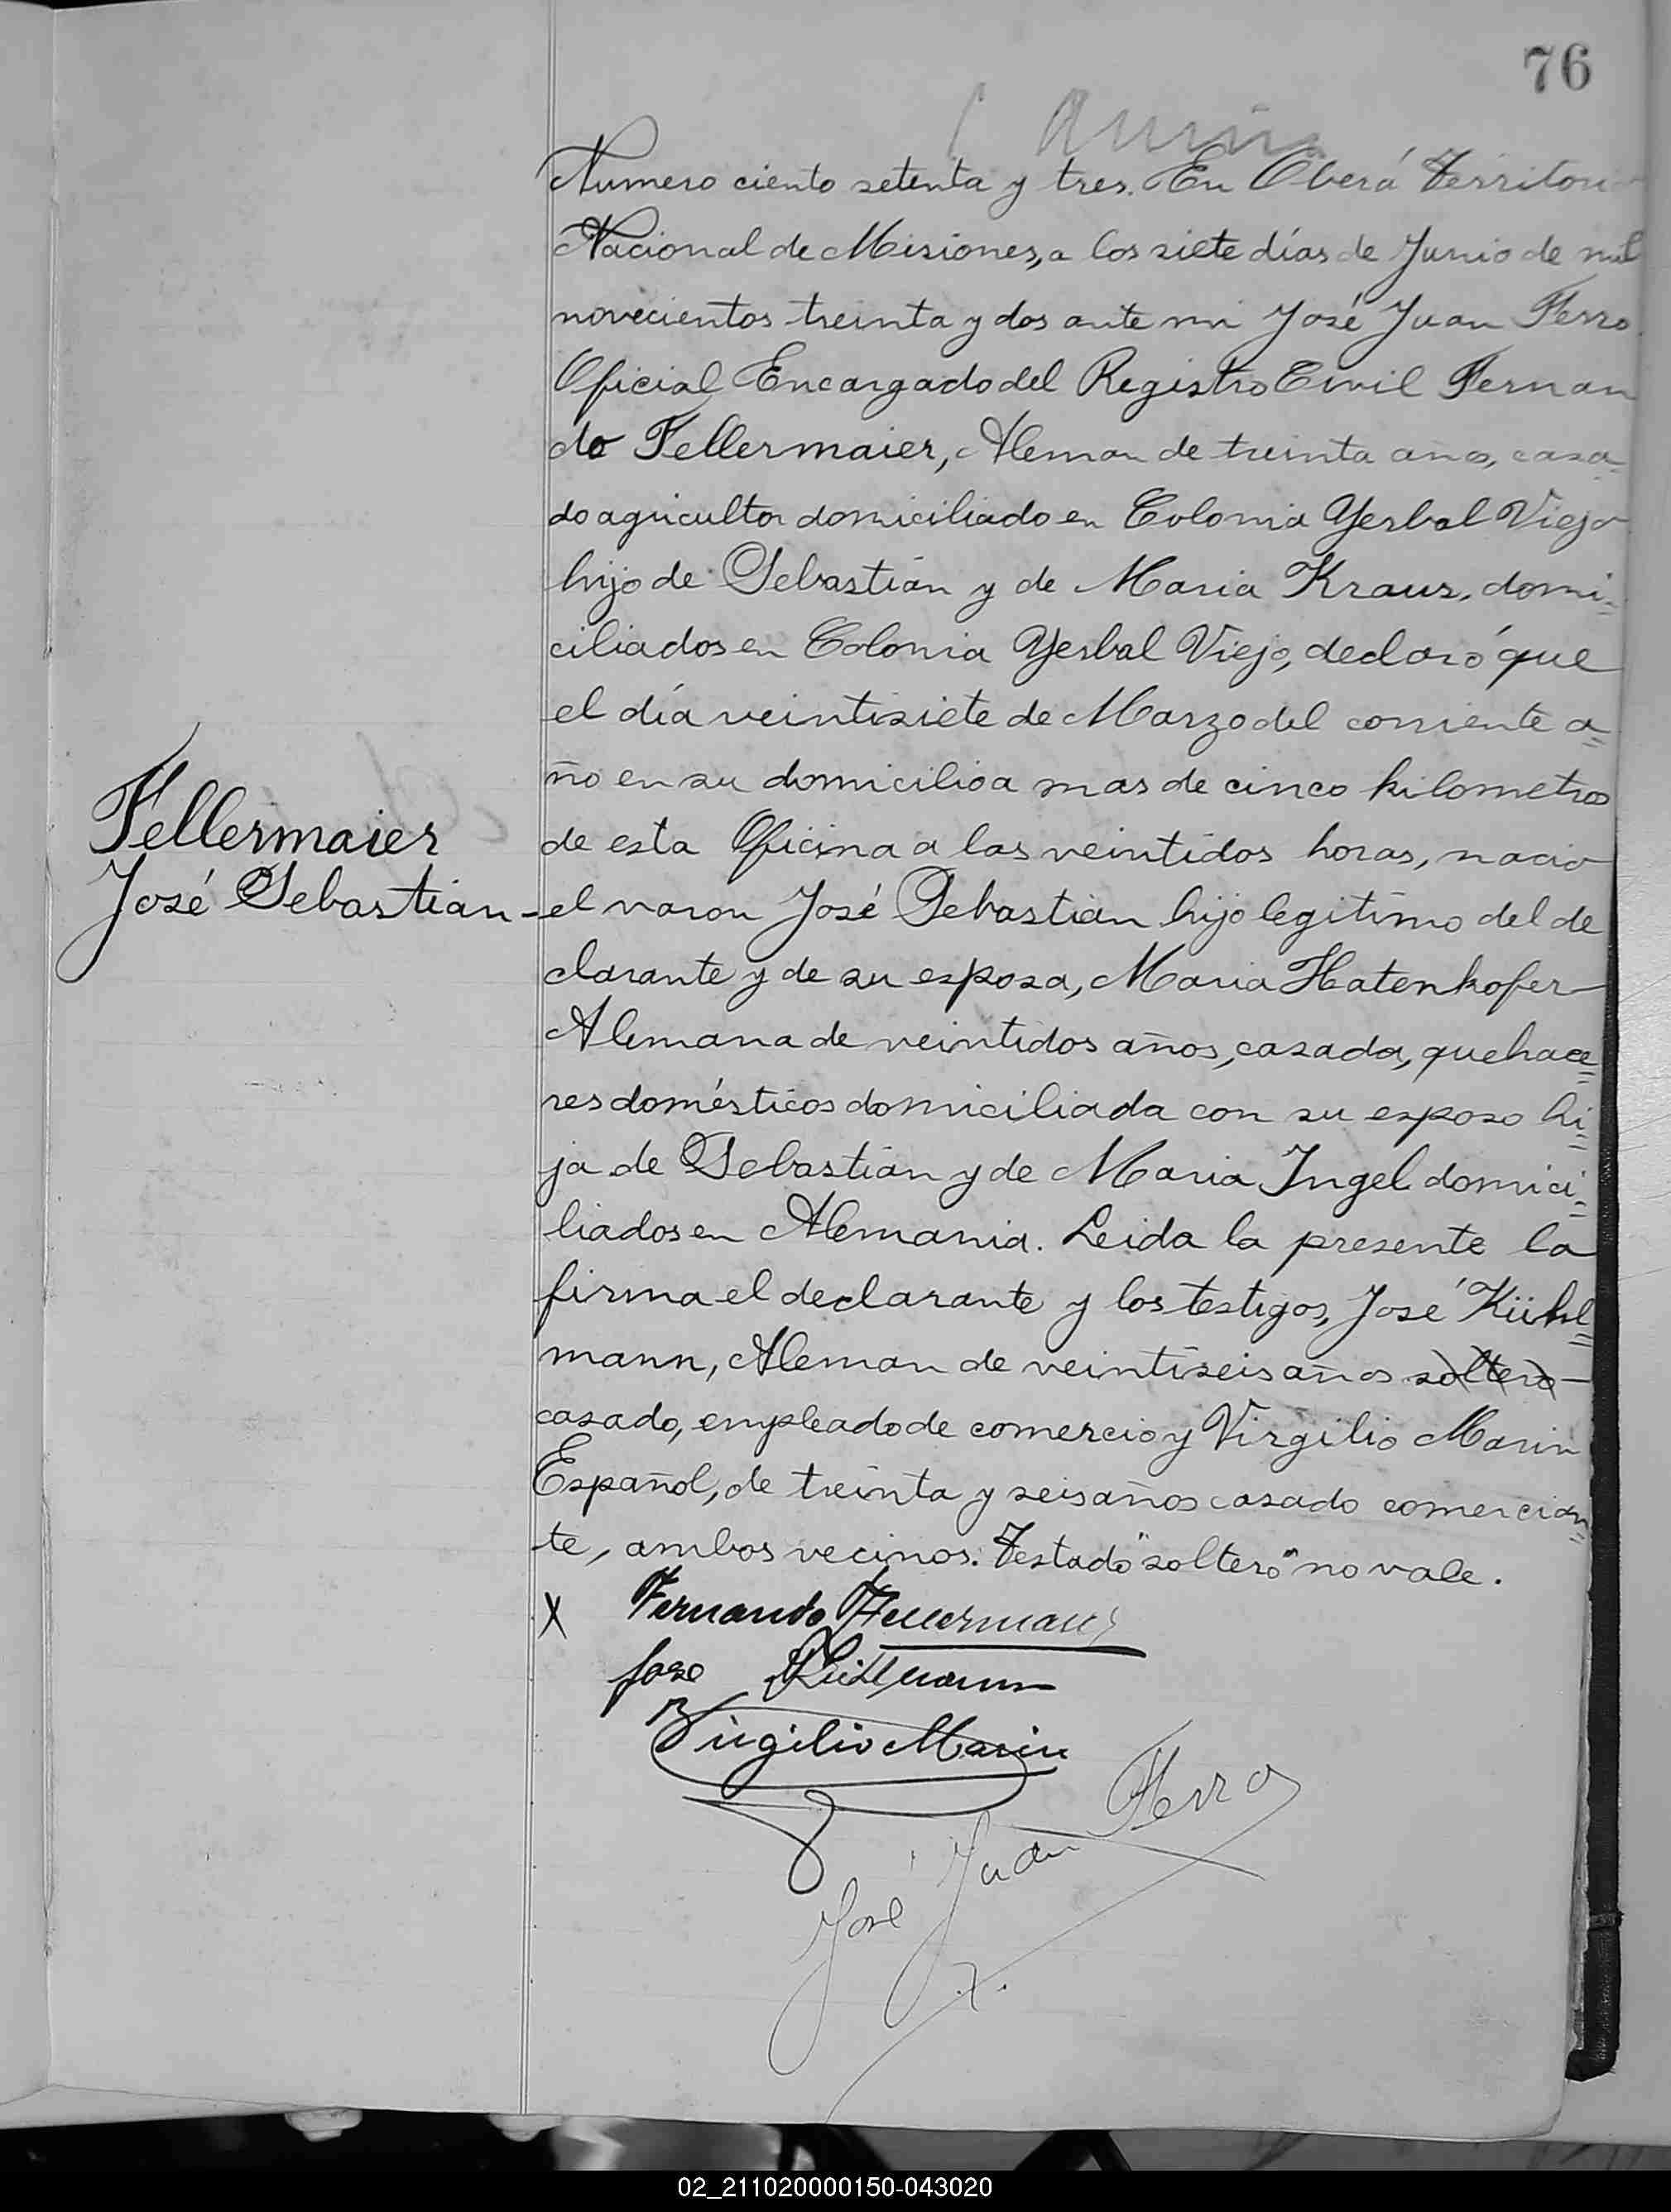 76
Numero ciento setenta y tres. En Oberá Territorio
Nacional de Misiones, a los siete días de Junio de mil
novecientos treinta y dos ante mi José Juan Ferro
Oficial Encargado del Registro Civil Fernan
do Fellermaier, Aleman de treinta años, casa-
do agricultor domiciliado en Colonia Yerbal Viejo
hijo de Sebastián y de Maria Kraus, domi-
ciliados en Colonia Yerbal Viejo, declaró que
el día veintisiete de Marzo del corriente a=
ño en su domicilio a mas de cinco kilometros
de esta Oficina a las veintidos horas, nació
Fellermaier
José Sebastián-
el varon José Sebastián hijo legítimo del de
clarante y de su esposa, Maria Hatenkofer
Alemana de veintidos años, casada, quehace=
res domésticos domiciliada con su esposo hi=
ja de Sebastián y de Maria Ingel domici=
liados en Alemania. Leida la presente la
firma el declarante y los testigos, José Kühl=
mann, Aleman de veintiseis años soltero-
casado, empleado de comercio y Virgilio Marin
Español, de treinta y seis años casado comercian=
te, ambos vecinos. Testado "soltero" no vale.
X Fernando Fellermaier
Jose Kühlmann
Virgilio Marin
José Juan Ferro
02_211020000150-043020